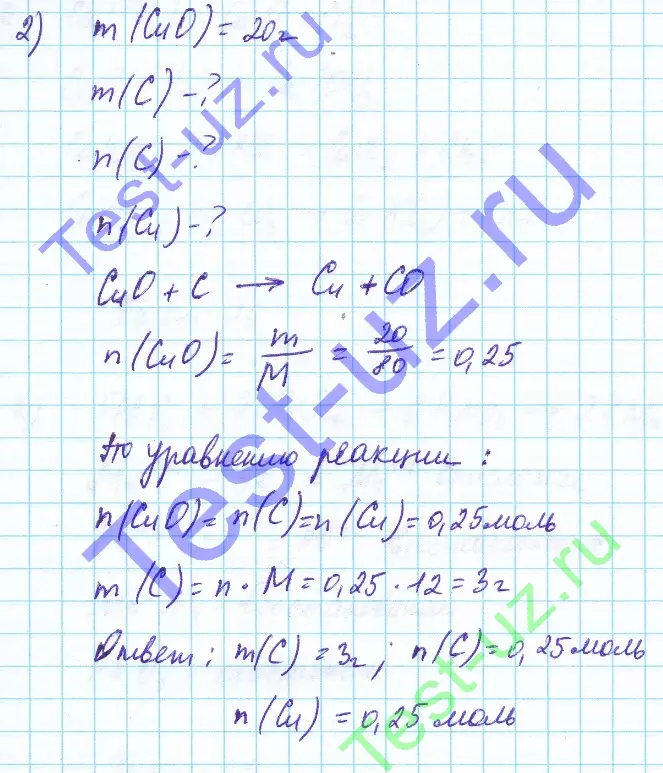 2) m(CuO) = 20г
m(C) - ?
n(C) - ?
n(Cu) - ?
CuO + C → Cu + CO
n(CuO) = m/M = 20/80 = 0,25
По уравнению реакции :
n(CuO) = n(C) = n(Cu) = 0,25 моль
m(C) = n · M = 0,25 · 12 = 3г
Ответ : m(C) = 3г ; n(C) = 0,25 моль
n(Cu) = 0,25 моль
Test-uz.ru
Test-uz.ru
Test-uz.ru